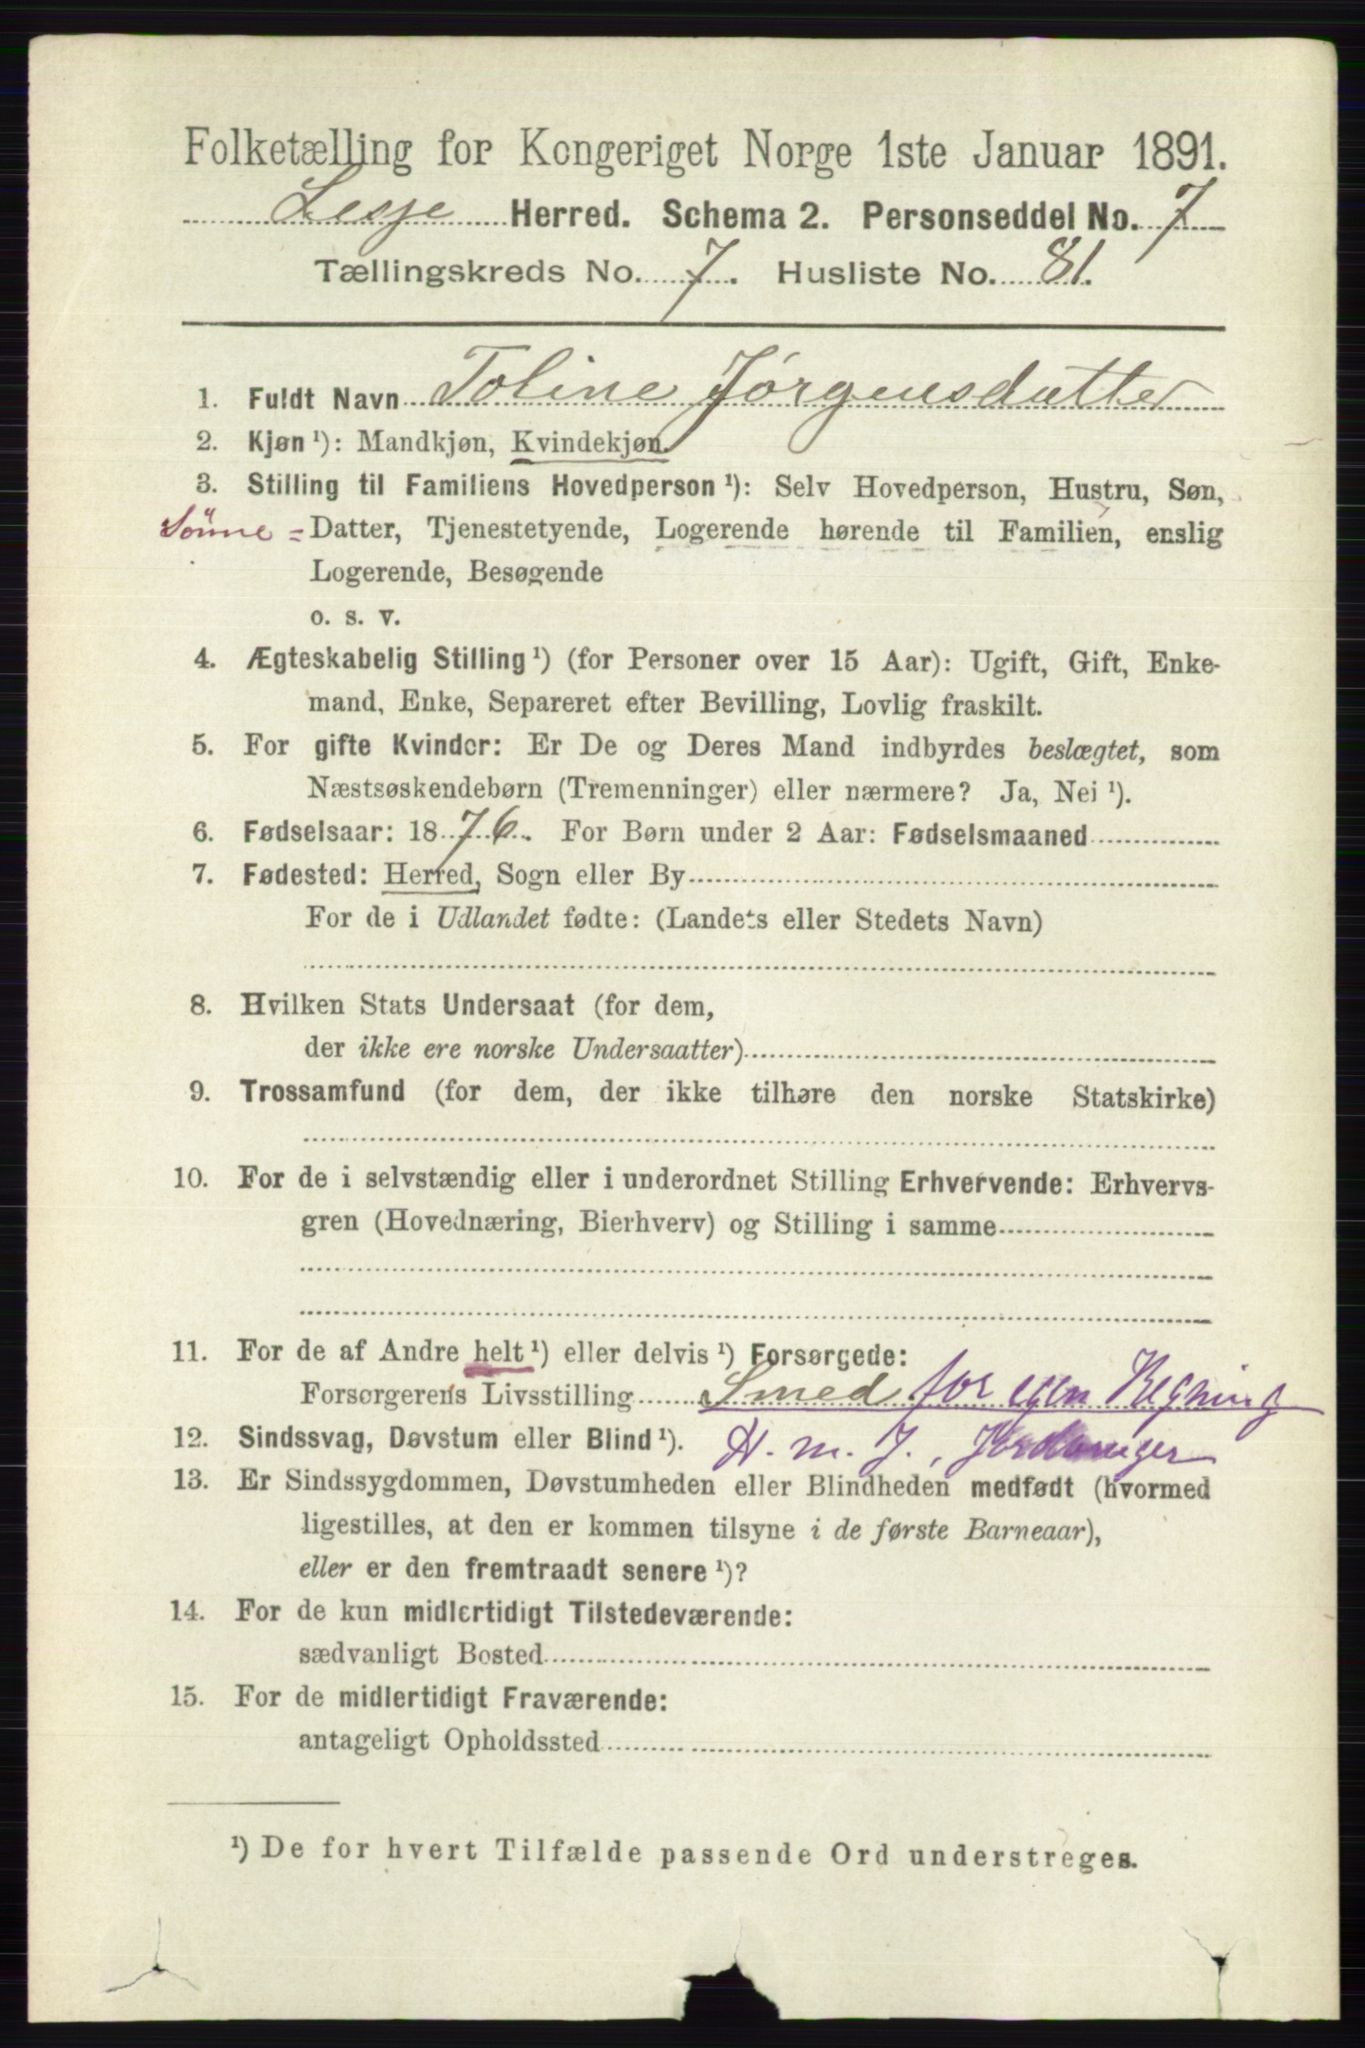 Folketælling for Kongeriget Norge 1ste Januar 1891.
Lesje Herred. Schema 2. Personseddel No. 7
Tællingskreds No. 7. Husliste No. 81.
1. Fuldt Navn Toline Jørgensdatter
2. Kjøn ¹): Mandkjøn, Kvindekjøn.
3. Stilling til Familiens Hovedperson ¹): Selv Hovedperson, Hustru, Søn,
Sønne = Datter, Tjenestetyende, Logerende hørende til Familien, enslig
Logerende, Besøgende
o. s. v.
4. Ægteskabelig Stilling ¹) (for Personer over 15 Aar): Ugift, Gift, Enke-
mand, Enke, Separeret efter Bevilling, Lovlig fraskilt.
5. For gifte Kvinder: Er De og Deres Mand indbyrdes beslægtet, som
Næstsøskendebørn (Tremenninger) eller nærmere? Ja, Nei ¹).
6. Fødselsaar: 1876. For Børn under 2 Aar: Fødselsmaaned
7. Fødested: Herred, Sogn eller By
For de i Udlandet fødte: (Landets eller Stedets Navn)
8. Hvilken Stats Undersaat (for dem,
der ikke ere norske Undersaatter)
9. Trossamfund (for dem, der ikke tilhøre den norske Statskirke)
10. For de i selvstændig eller i underordnet Stilling Erhvervende: Erhvervs-
gren (Hovednæring, Bierhverv) og Stilling i samme
11. For de af Andre helt ¹) eller delvis ¹) Forsørgede:
Forsørgerens Livsstilling Smed for egen Regning
12. Sindssvag, Døvstum eller Blind ¹). H. m. J.,
13. Er Sindssygdommen, Døvstumheden eller Blindheden medfødt (hvormed
ligestilles, at den er kommen tilsyne i de første Barneaar),
eller er den fremtraadt senere ¹)?
14. For de kun midlertidigt Tilstedeværende:
sædvanligt Bosted
15. For de midlertidigt Fraværende:
antageligt Opholdssted
¹) De for hvert Tilfælde passende Ord understreges.